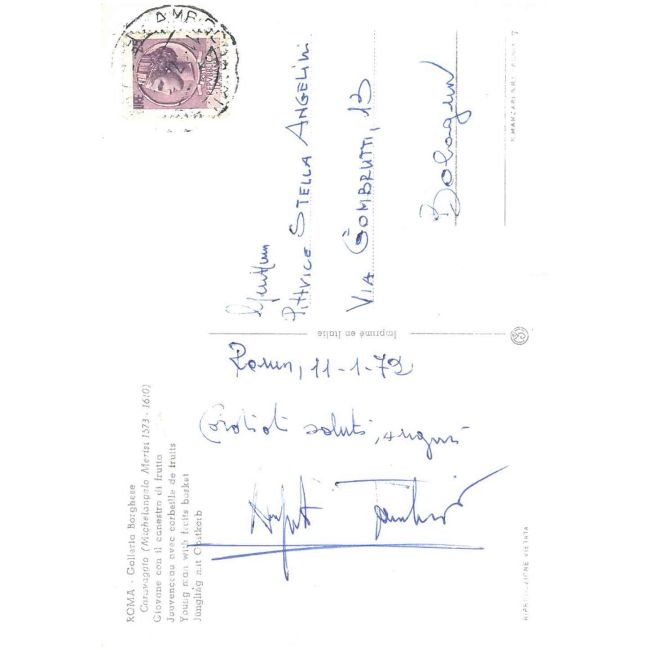 ROMA - Galleria Borghese
Caravaggio (Michelangelo Merisi 1573 - 1610)
Giovane con il canestro di frutta
Jouvenceau avec corbeille de fruits
Young man with fruits basket
Jüngling mit Obstkorb
Roma, 11-1-72
Cordiali saluti, auguri
Imprimé en Italie
Gent.ma
Pittrice STELLA ANGELINI
VIA GOMBRUTTI, 13
Bologna
RIPRODUZIONE VIETATA
LIRE